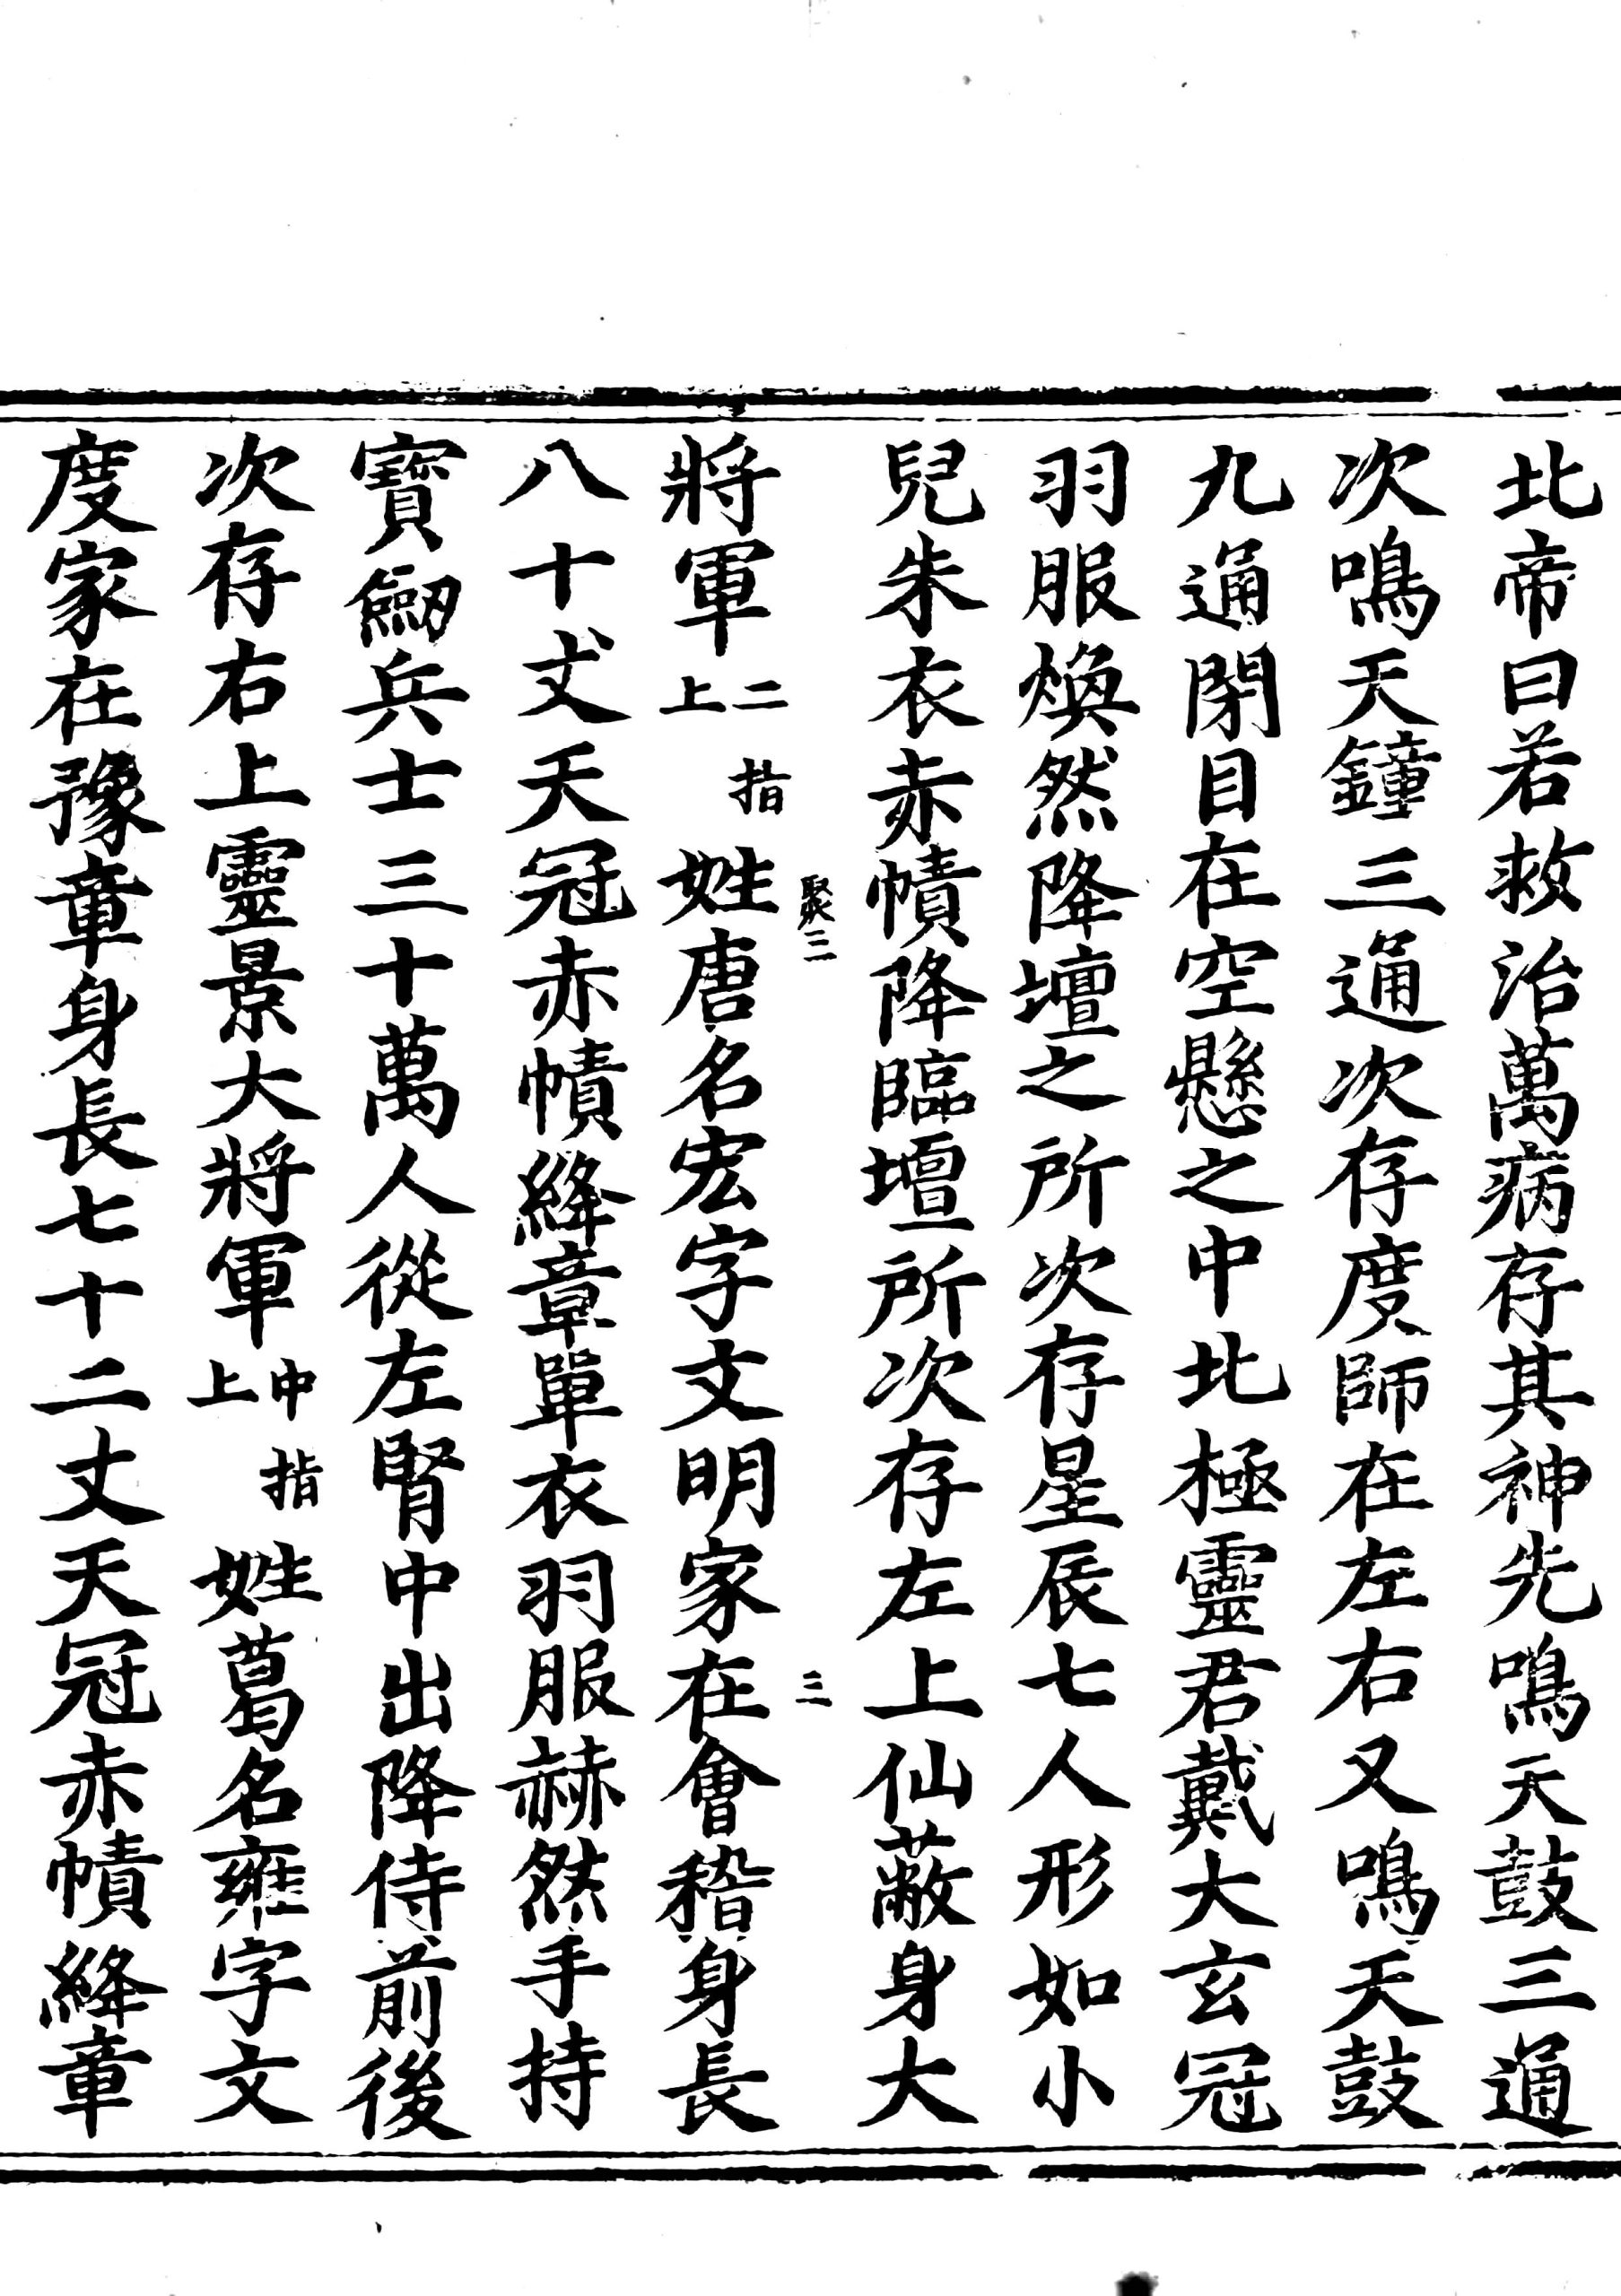 北帝曰若救治萬病存其神先鳴天鼓三通
次鳴天鐘三通次存度師在左右又鳴天鼓
九通閉目在空懸之中北極靈君戴大玄冠
羽服煥然降壇之所次存星辰七人形如小
兒朱衣赤幘降臨壇所次存左上仙蔽身大
聚三 三
將軍二指上姓唐名宏字文明家在會稽身長
八十丈天冠赤幘絳章單衣羽服赫然手持
寶劒兵士三十萬人從左腎中出降侍前後
次存右上靈景大將軍中指上姓葛名雍字文
度家在豫章身長七十二丈天冠赤幘絳章